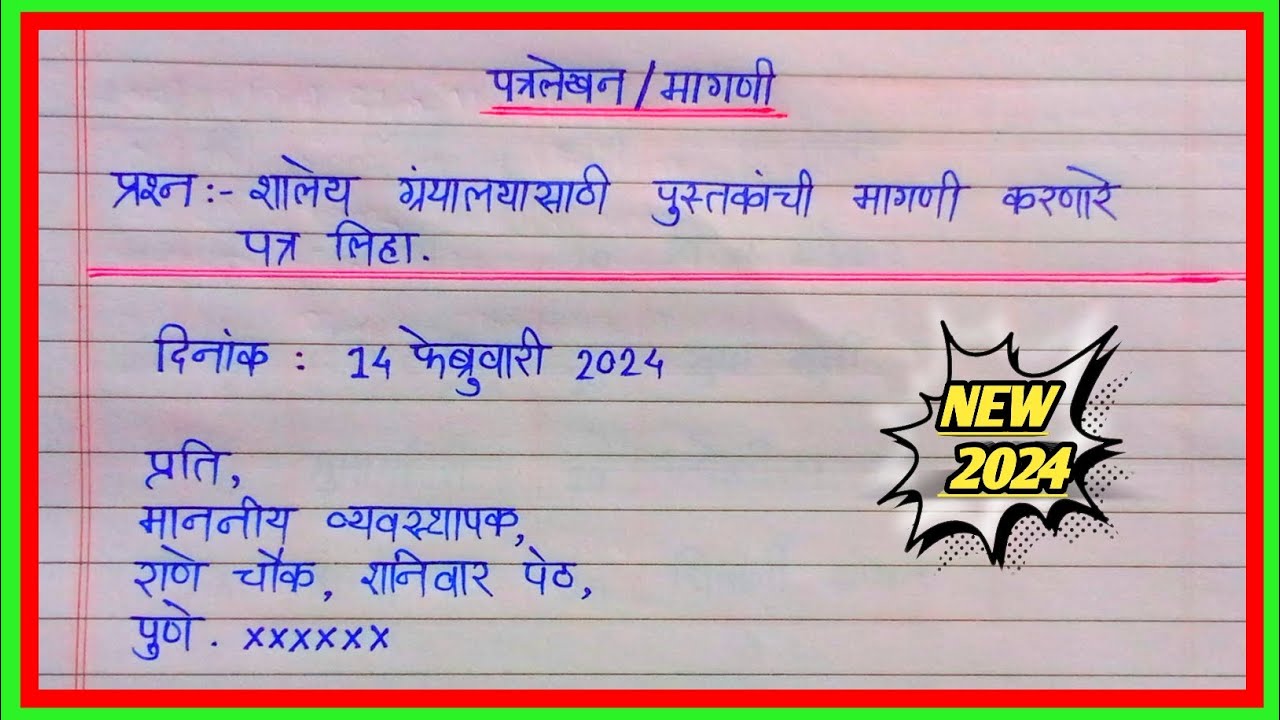 पत्रलेखन/मागणी
प्रश्न:- शालेय ग्रंयालयासाठी पुस्तकांची मागणी करणारे
पत्र लिहा.
दिनांक : 14 फेब्रुवारी 2024
NEW
2024
प्रति,
माननीय व्यवस्थापक,
राणे चौक, शनिवार पेठ,
पुणे. xxxxxx